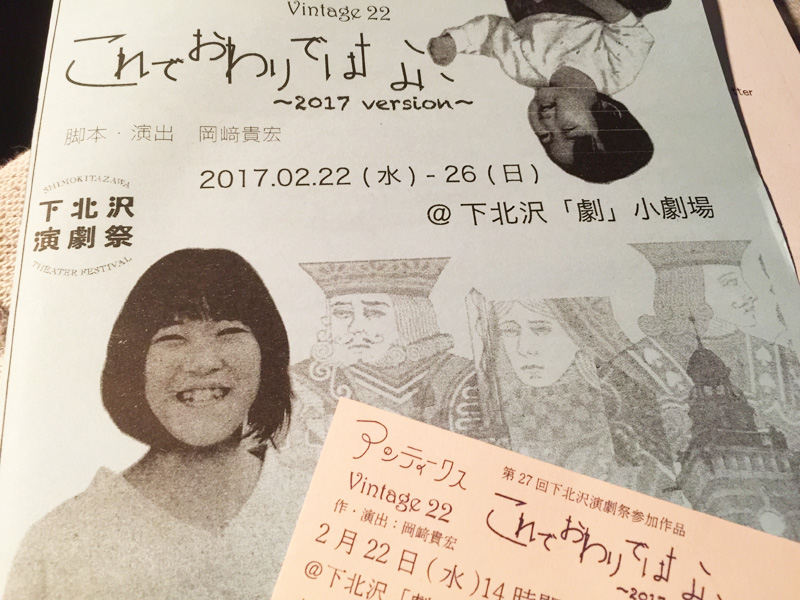 Vintage 22
これでおわりではない
～2017 version～
脚本・演出　岡﨑貴宏
2017.02.22 (水) - 26 (日)
@ 下北沢「劇」小劇場
SHIMOKITAZAWA
下北沢
演劇祭
THEATER FESTIVAL
アンティークス
Vintage 22
作・演出：岡﨑貴宏
2月22日(水)14時
@下北沢「劇」
第27回下北沢演劇祭参加作品
これでおわりではない
～2017